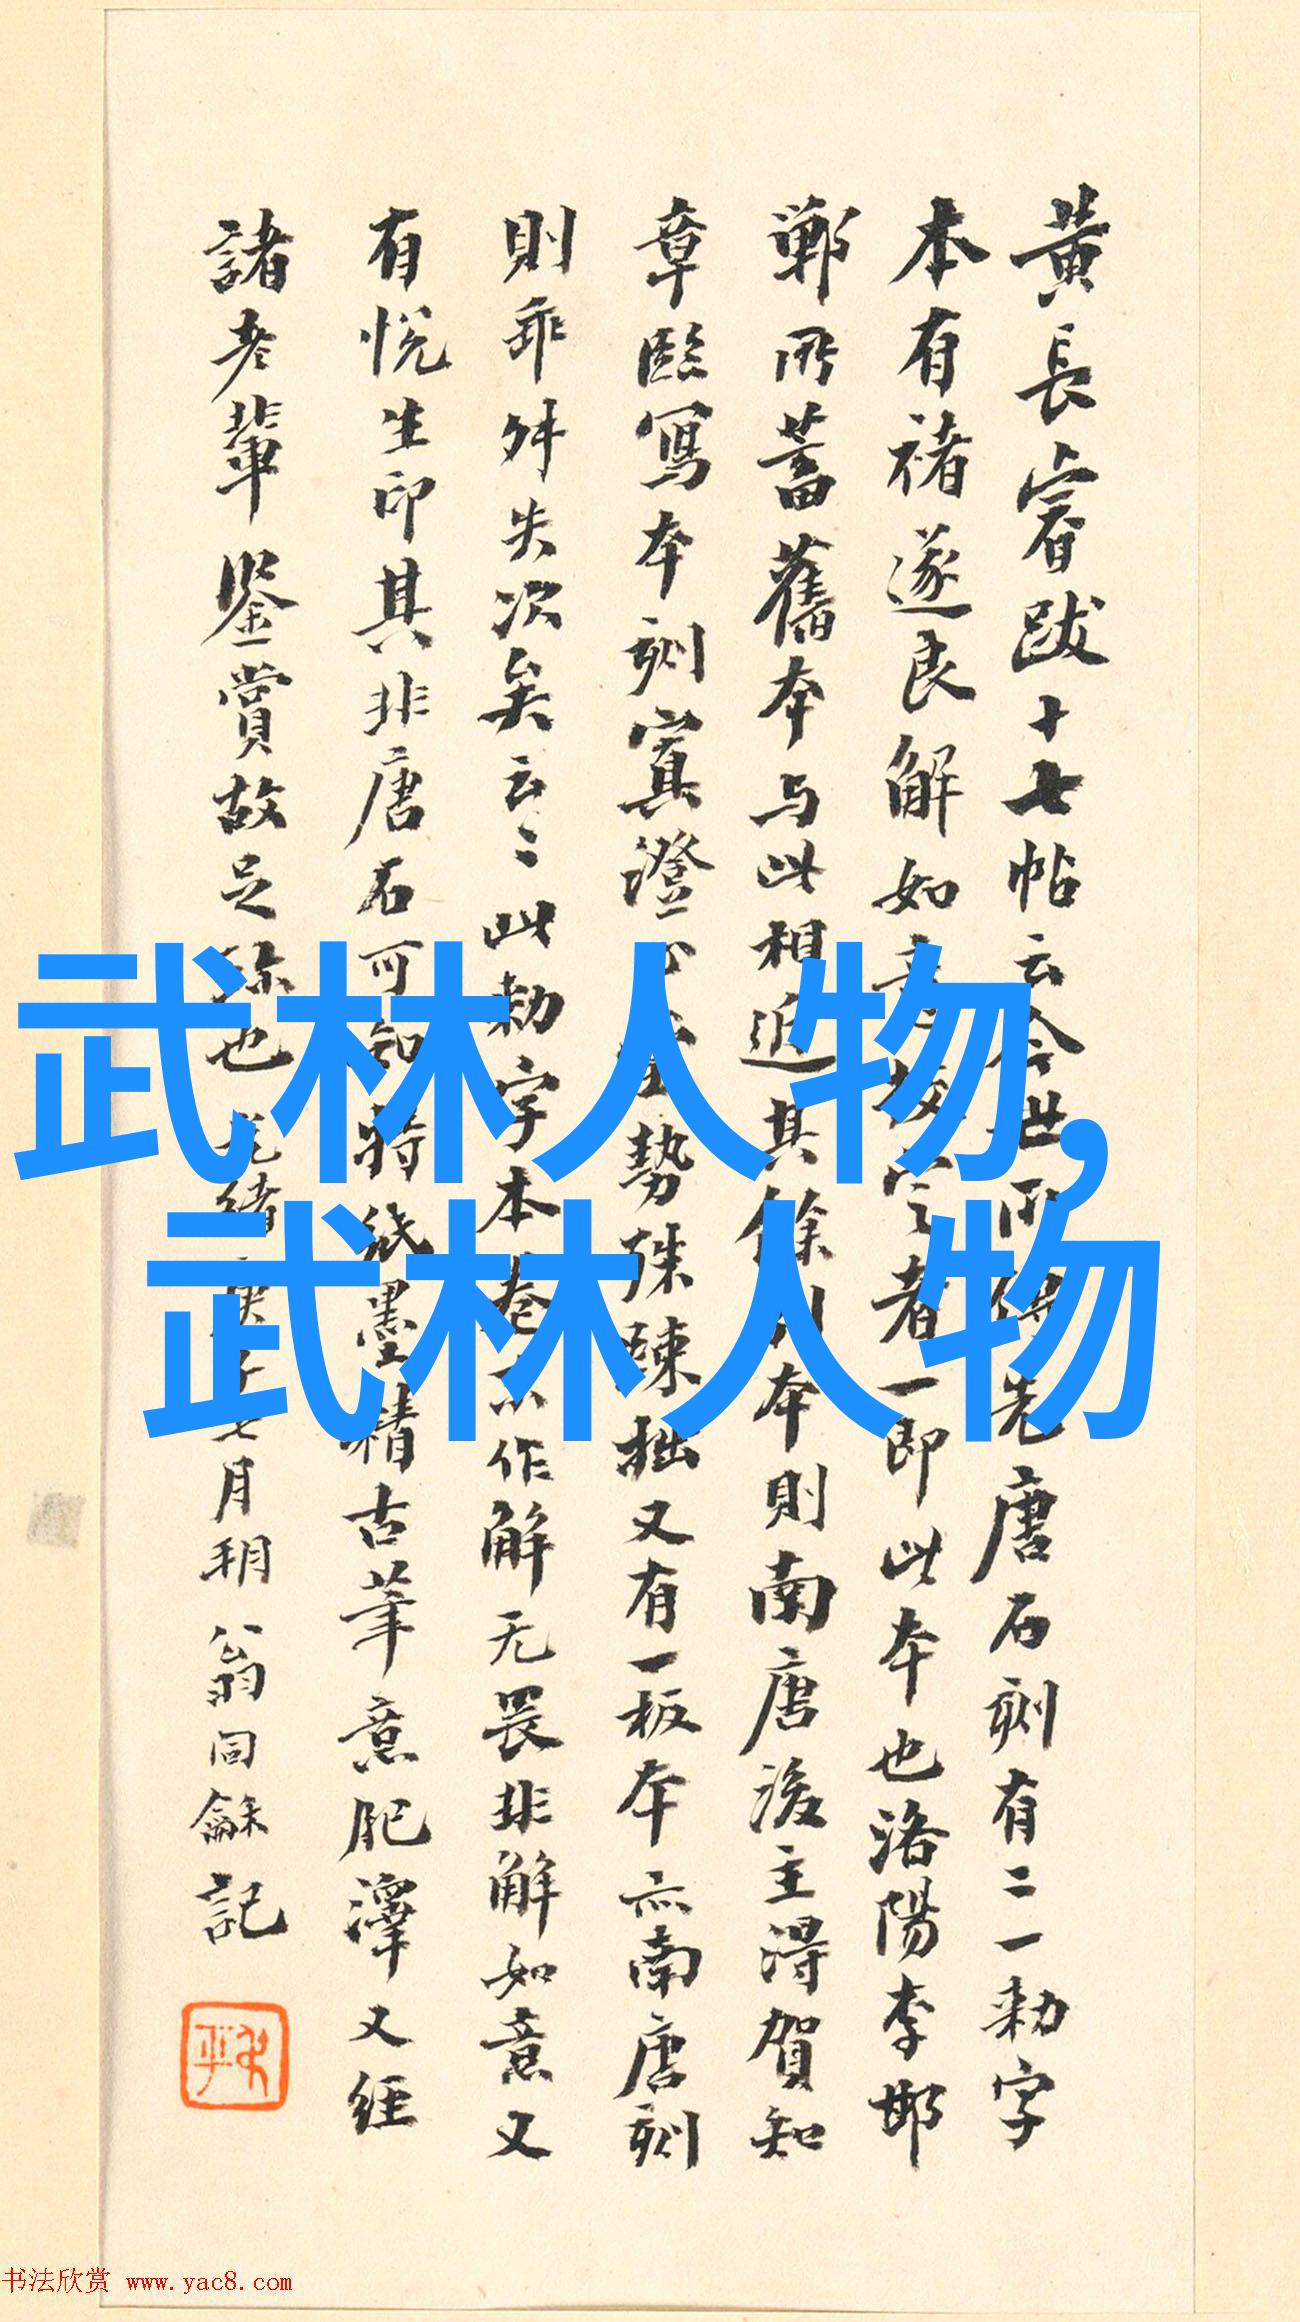 黃長睿跋十七帖云今世所傳先唐石刻有二一勅字
本有褚遂良解如意校定者一即此本也洛陽李邯
鄲所蓄舊本与此相近其餘別本則南唐後主得賀知
章臨寫本刻寘澄心堂勢殊疎拙又有一板本亦南唐刻
則乖舛失次矣云〻此勅字本卷末作解无畏非解如意又
有悅生印其非唐石可知特紙墨精古筆意肥澤又經
諸老輩鑒賞故足珎也光緒庚子七月朔翁同龢記
武林人物,
武林人物
書法欣赏 www.yac8.com